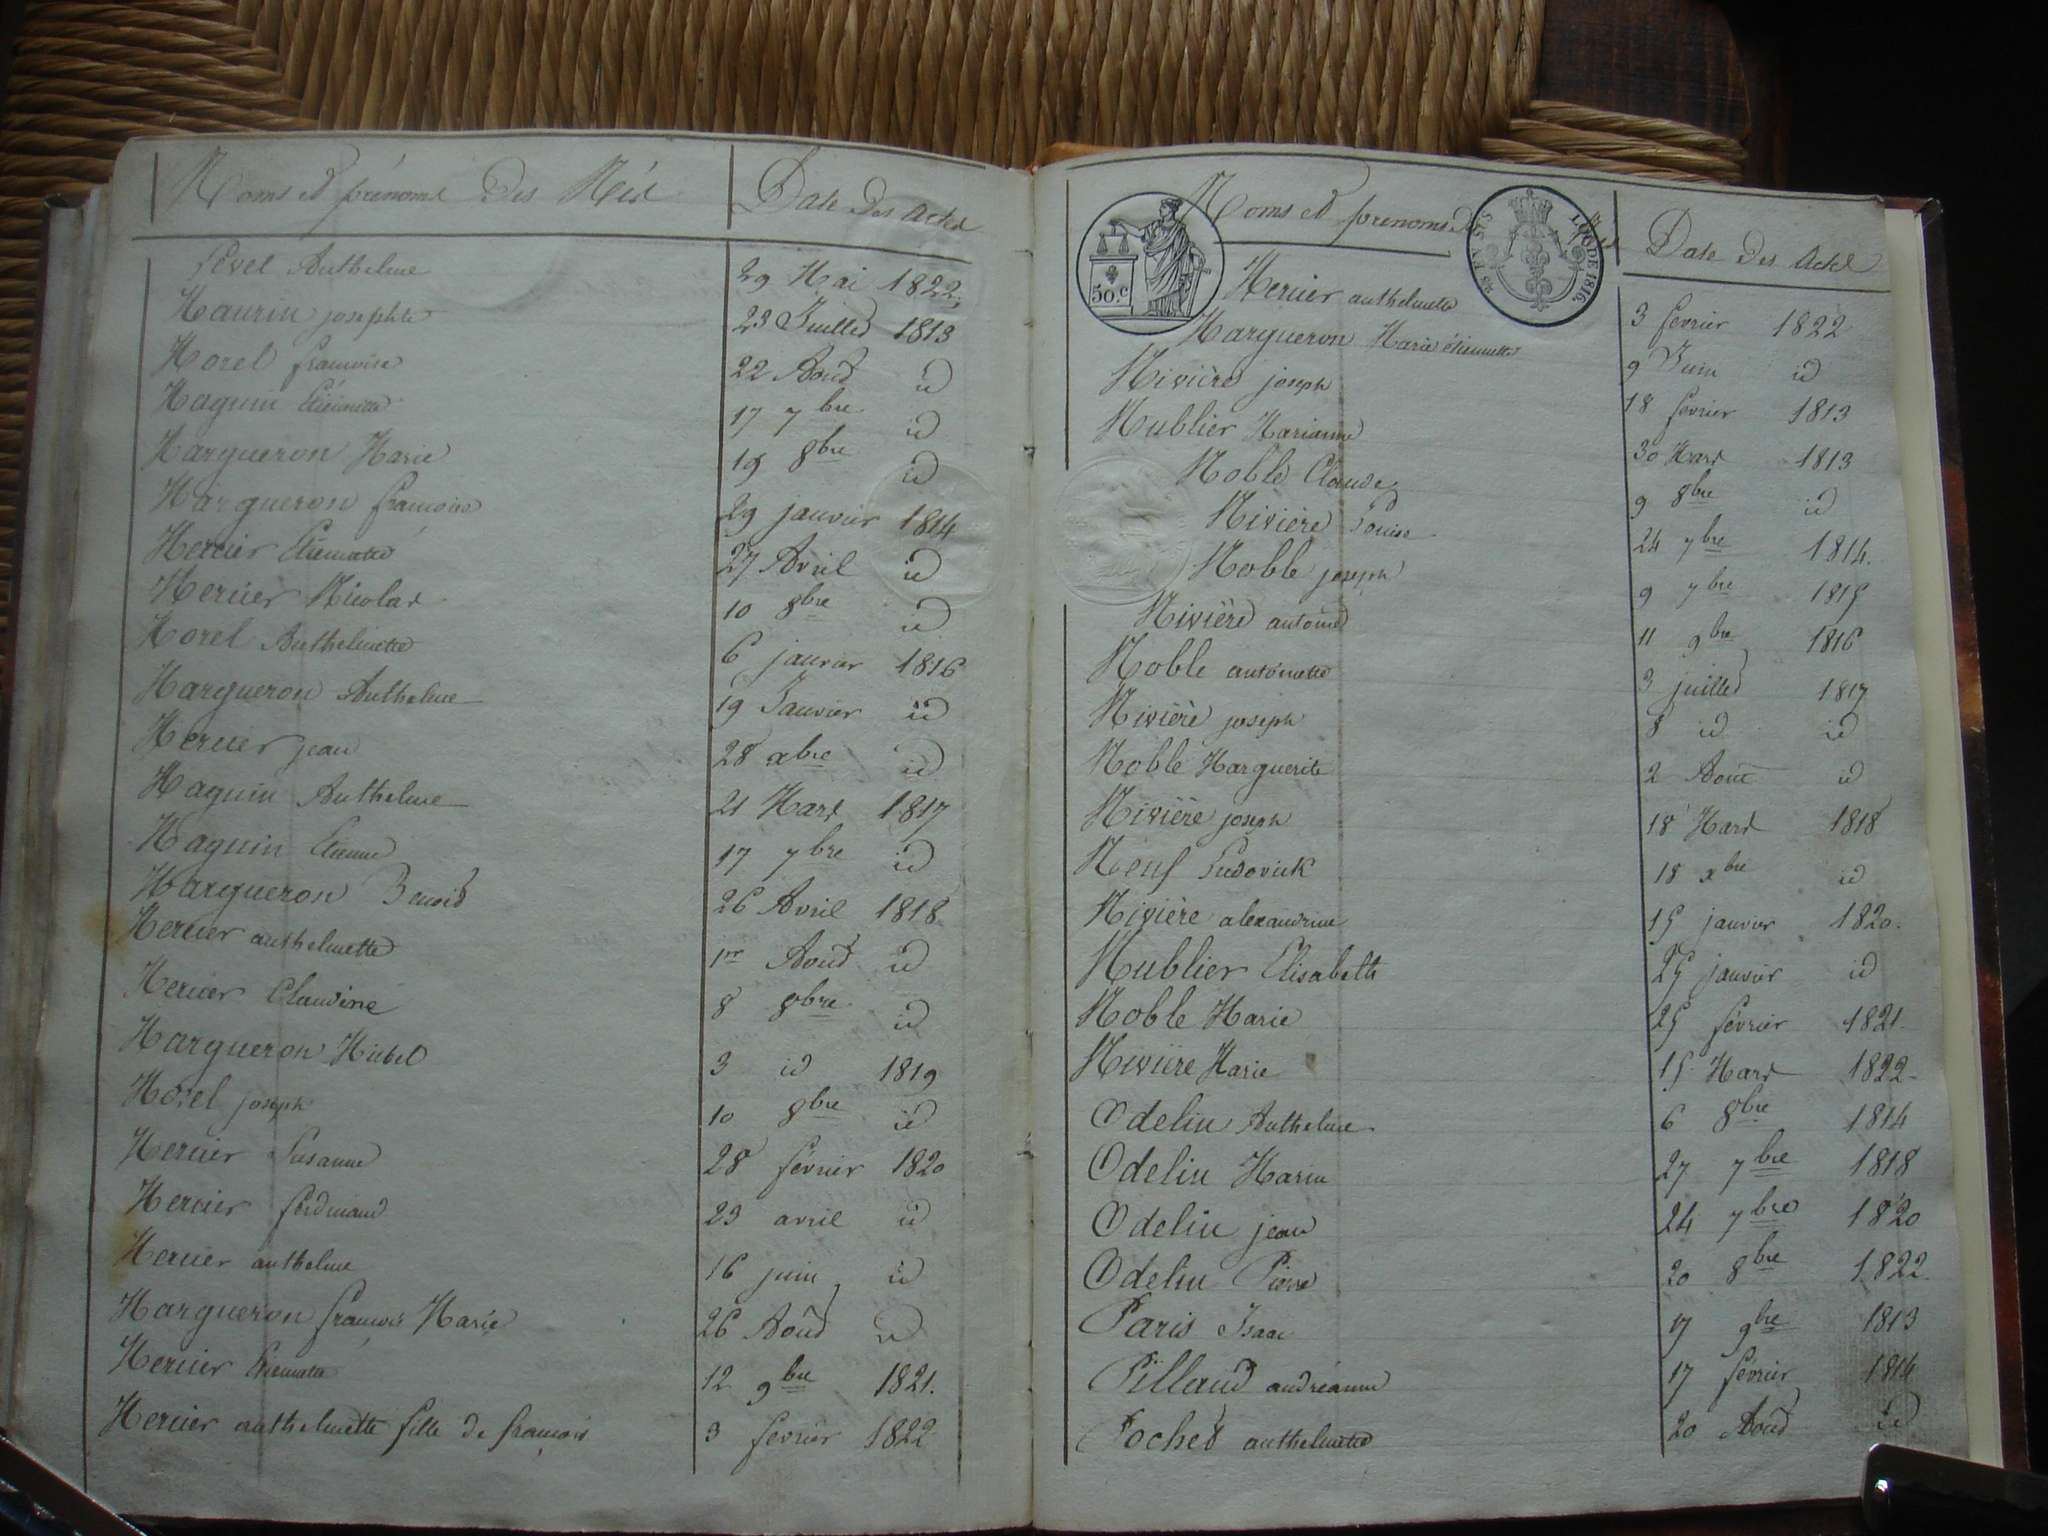 Noms et prénoms des Nés Date des Actes
Levet Anthelme 29 Mai 1822
Maurin josephte 23 Juillet 1813
Morel françoise 22 Aout id
Maguin Etiennette 17 7bre id
Margueron Marie 19 8bre id
Margueron françois 29 janvier 1814
Mercier Etiennette 27 Avril id
Mercier Nicolas 10 8bre id
Morel Anthelmette 6 janvier 1816
Margueron Anthelme 19 Janvier id
Mercier jean 28 xbre id
Maguin Anthelme 21 Mars 1817
Maguin Etienne 17 7bre id
Margueron Benoit 26 Avril 1818
Mercier anthelmette 1er Aout id
Mercier Claudine 8 8bre id
Margueron Michel 3 id 1819
Morel joseph 10 8bre id
Mercier Susanne 28 fevrier 1820
Mercier ferdinand 23 avril id
Mercier anthelme 16 juin id
Margueron françois Marie 26 Aout id
Mercier Etiennette 12 9bre 1821.
Mercier anthelmette fille de françois 3 fevrier 1822
Noms et prenoms Date des Actes
50.c
LOI DE 1816.
Mercier anthelmette 3 fevrier 1822
Margueron Marie étiennette 9 Juin id
Nivière joseph 18 fevrier 1813
Nublier Marianne 30 Mars 1813
Noble Claude 9 8bre id
Nivière Louise 24 7bre 1814.
Noble joseph 9 7bre 1815
Nivière antoine 11 9bre 1816
Noble antoinette 3 juillet 1817
Nivière joseph 8 id id
Noble Marguerite 2 Aout id
Nivière joseph 18 Mars 1818
Neuf Ludovick 18 xbre id
Nivière alexandrine 15 janvier 1820.
Nublier Elisabeth 25 janvier id
Noble Marie 25 février 1821.
Nivière Marie 15 Mars 1822.
Odelin Anthelme 6 8bre 1814
Odelin Marie 27 7bre 1818
Odelin jean 24 7bre 1820
Odelin Pierre 20 8bre 1822.
Paris Isaac 17 9bre 1813
Pillaud andréanne 17 fevrier 1814
Pochet anthelmette 20 Aout id